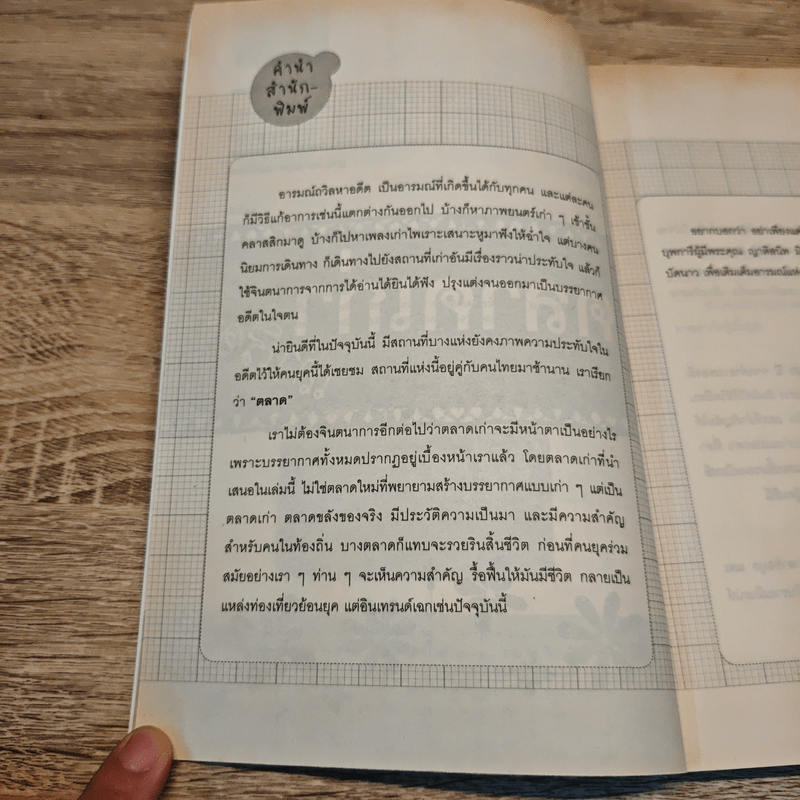 คำนำ
สำนัก-
พิมพ์
อารมณ์ถวิลหาอดีต เป็นอารมณ์ที่เกิดขึ้นได้กับทุกคน และแต่ละคน
ก็มีวิธีแก้อาการเช่นนี้แตกต่างกันออกไป บ้างก็หาภาพยนตร์เก่า ๆ เข้าขั้น
คลาสสิกมาดู บ้างก็ไปหาเพลงเก่าไพเราะเสนาะหูมาฟังให้ฉ่ำใจ แต่บางคน
นิยมการเดินทาง ก็เดินทางไปยังสถานที่เก่าอันมีเรื่องราวน่าประทับใจ แล้วก็
ใช้จินตนาการจากการได้อ่านได้ยินได้ฟัง ปรุงแต่งจนออกมาเป็นบรรยากาศ
อดีตในใจตน
น่ายินดีที่ในปัจจุบันนี้ มีสถานที่บางแห่งยังคงภาพความประทับใจใน
อดีตไว้ให้คนยุคนี้ได้เชยชม สถานที่แห่งนี้อยู่คู่กับคนไทยมาช้านาน เราเรียก
ว่า “ตลาด”
เราไม่ต้องจินตนาการอีกต่อไปว่าตลาดเก่าจะมีหน้าตาเป็นอย่างไร
เพราะบรรยากาศทั้งหมดปรากฏอยู่เบื้องหน้าเราแล้ว โดยตลาดเก่าที่นำ
เสนอในเล่มนี้ ไม่ใช่ตลาดใหม่ที่พยายามสร้างบรรยากาศแบบเก่า ๆ แต่เป็น
ตลาดเก่า ตลาดขลังของจริง มีประวัติความเป็นมา และมีความสำคัญ
สำหรับคนในท้องถิ่น บางตลาดก็แทบจะรวยรินสิ้นชีวิต ก่อนที่คนยุคร่วม
สมัยอย่างเรา ๆ ท่าน ๆ จะเห็นความสำคัญ รื้อฟื้นให้มันมีชีวิต กลายเป็น
แหล่งท่องเที่ยวย้อนยุค แต่อินเทรนด์เฉกเช่นปัจจุบันนี้
อยากบอกว่า อย่าเพียงแต่
บุพการีผู้มีพระคุณ ญาติสนิท
บัดนาว เพื่อเติมเต็มอารมณ์แห่ง